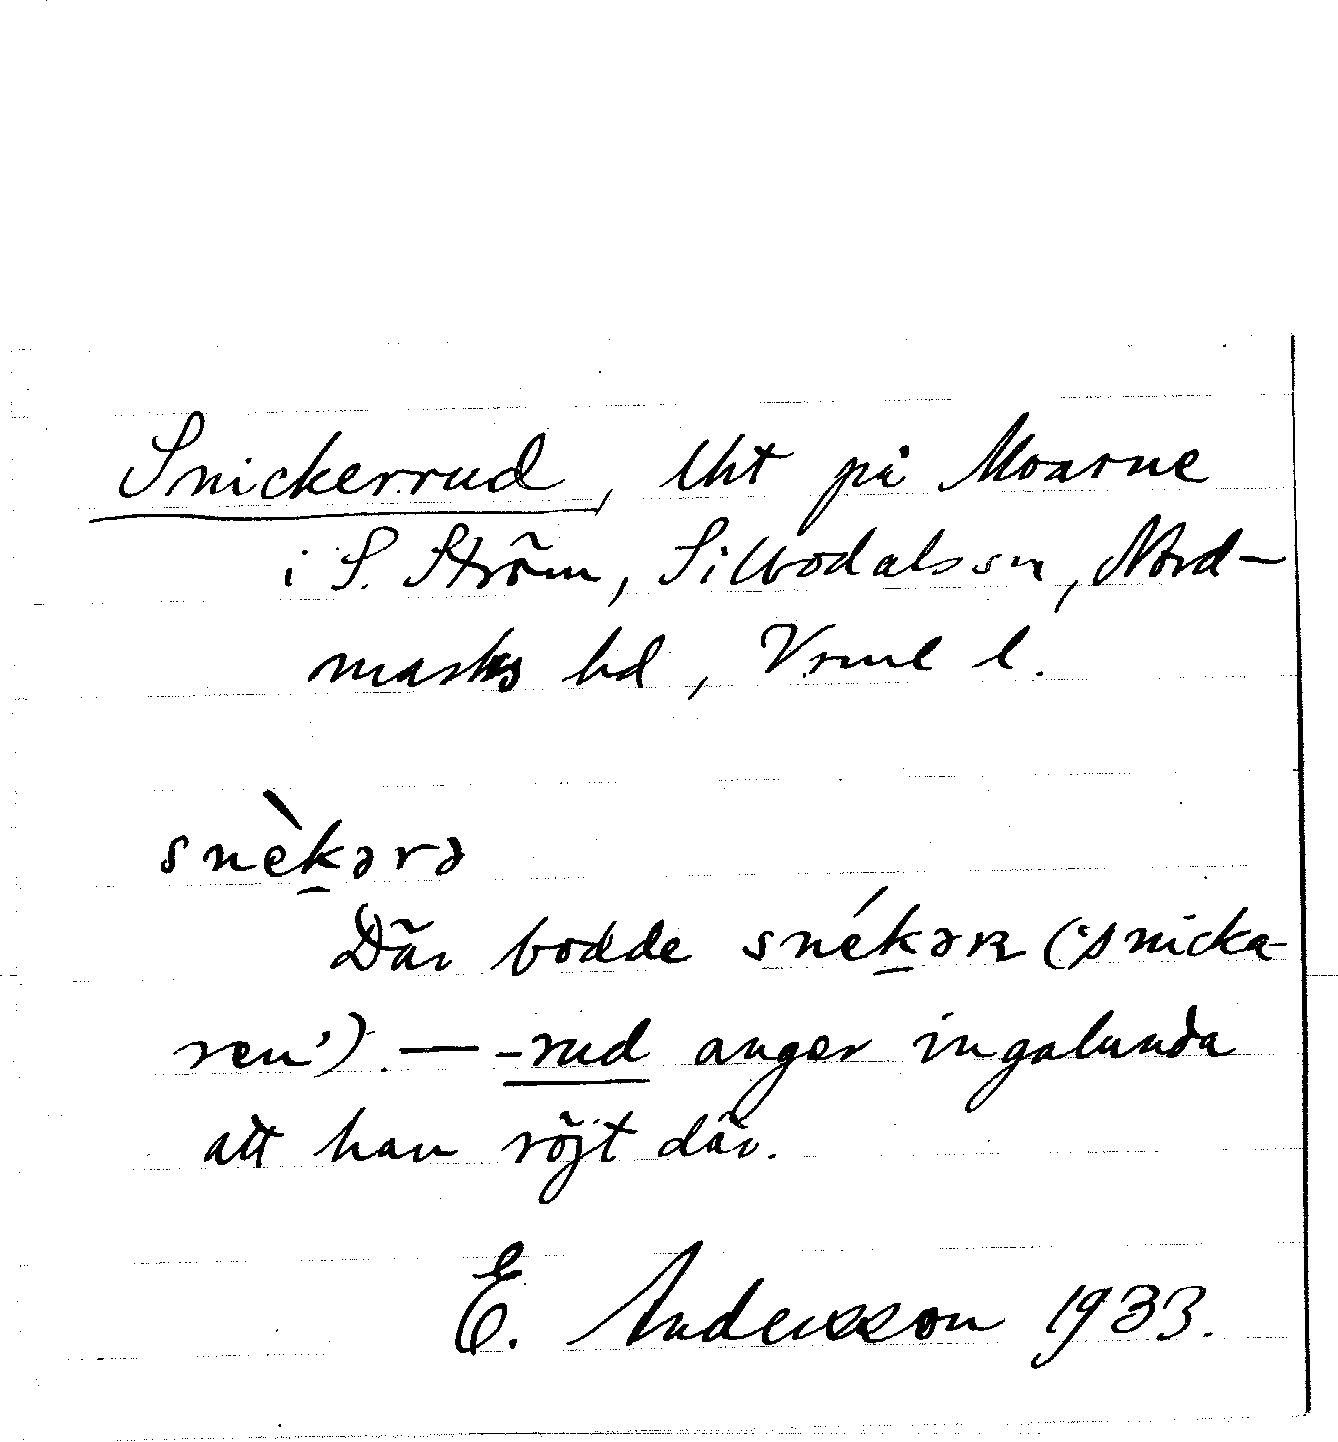 Snickerrud, lht på Moarne
i S. Ström, Silbodalssn, Nord-
marks hd, Vrml l.
snèkərə
Där bodde snékəʀ ('snicka-
ren'). — -rud anger ingalunda
att han röjt där.
E. Andersson 1933.